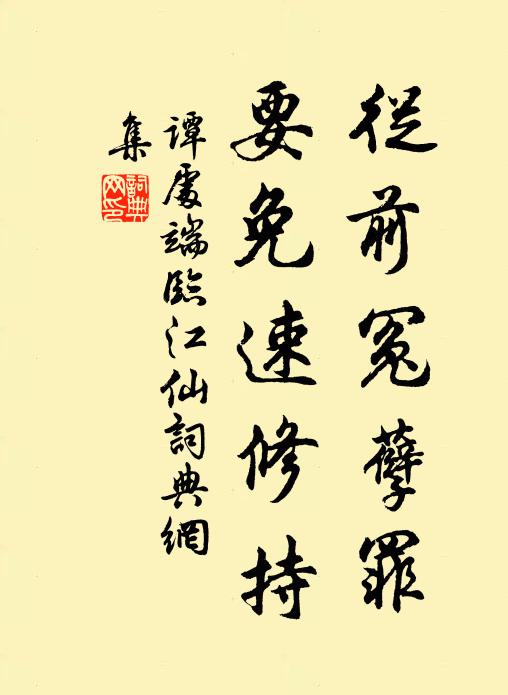 從前冤孽罪
要免速修持
譚處端臨江仙詞典網
集
詞典
网印